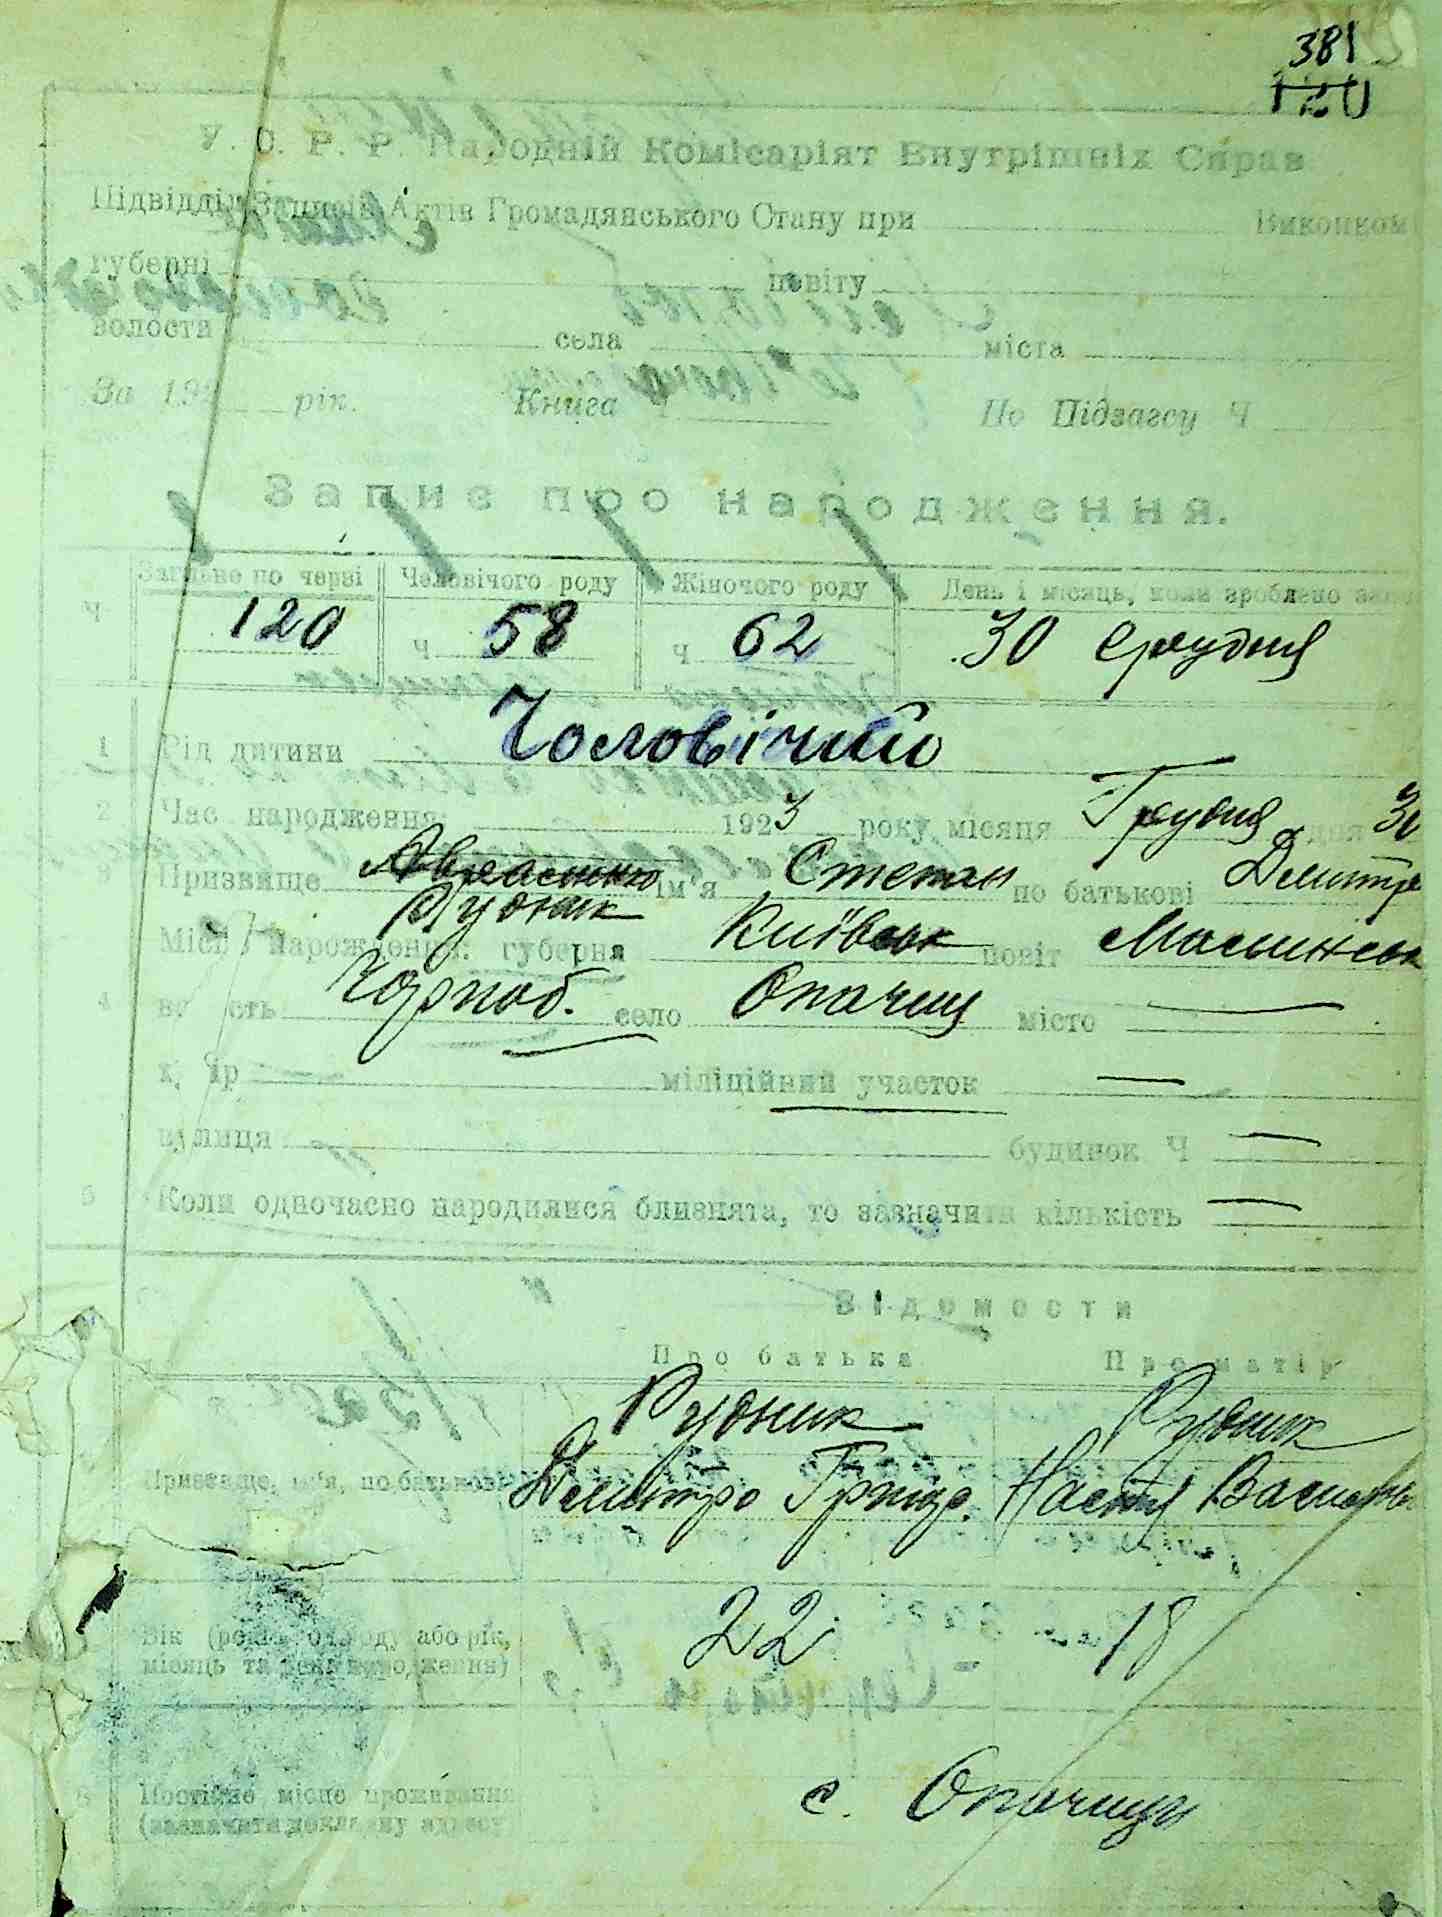 381
120
У. С. Р. Р. Народній Комісаріят Внутрішніх Справ
Підвідділ Записів Актів Громадянського Стану при Виконком
губерні повіту
волости села міста
За 192 рік. Книга По Підзагсу Ч
Запис про народження.
Ч Загальне по черві Чоловічого роду Жіночого роду День і місяць, коли зроблено запис
120 ч 58 ч 62 30 Грудня
1 Рід дитини Чоловічий
2 Час народження 1923 року, місяця Грудня дня 30
3 Призвище ім'я Степан по батькові Дмитр
Рудник
Місце народження: губерня Київськ повіт
4 волость Чорноб. село Опачиці місто —
хутір — міліційний участок —
вулиця — будинок Ч —
5 Коли одночасно народилися близнята, то зазначити кількість —
Відомости
Про батька Про матір
Рудник Рудник
Призвище, ім'я, по батькові Дмитро Григор. Настя Василівн
Вік (років от роду або рік, 22 18
місяць та день народження)
8 Постійне місце проживання с. Опачици
(зазначити докладну адресу